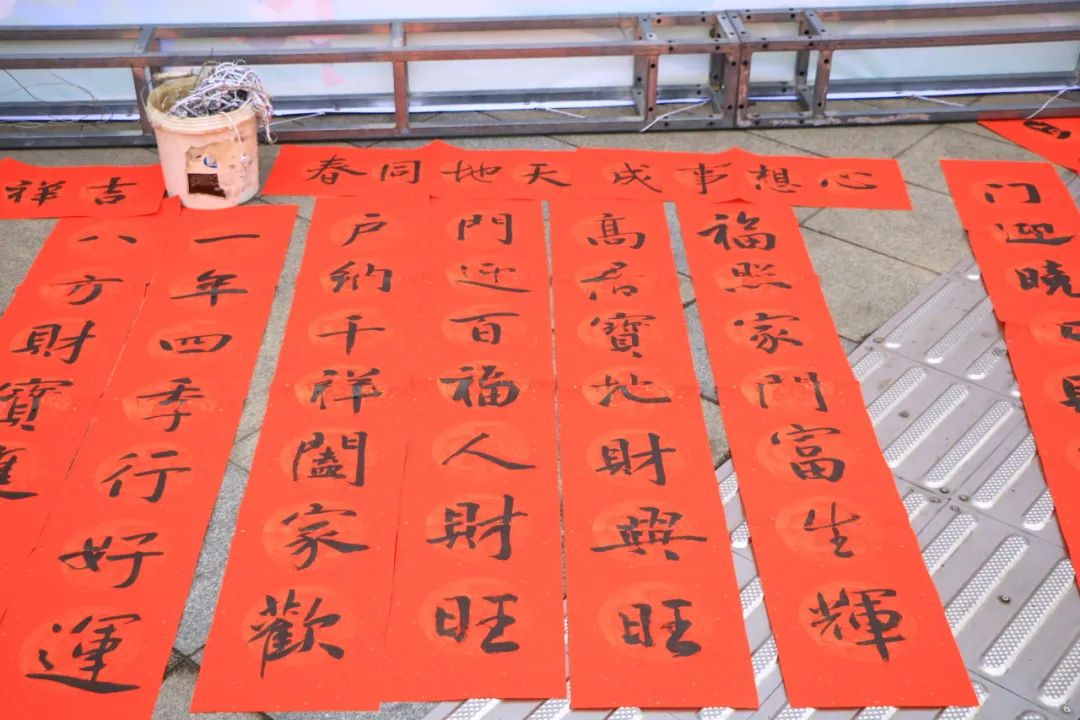 心想事成
天地同春
吉祥
门迎晓
福照家門富生輝
高居寶地財興旺
門迎百福人財旺
户納千祥闔家歡
一年四季行好運
八方財寶